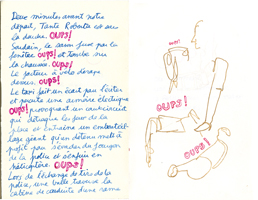 Deux minutes avant notre
départ, Tante Roberta est sous
la douche. OUPS!
Soudain, le savon fuse par la
fenêtre OUPS! et tombe sur
la chaussée. OUPS!
Le facteur à vélo dérape
dessus. OUPS!
Le taxi fait un écart pour l'éviter
et percute une armoire électrique
OUPS! provoquant un court-circuit
qui détraque les feux de la
place et entraîne un embouteil-
lage géant qu'un détenu met à
profit pour s'évader du fourgon
de la police et s'enfuir en
hélicoptère. OUPS!
Lors de l'échange de tirs de la
police, une balle traverse la
cabine de conduite d'une rame
OUPS!
OUPS!
OUPS!